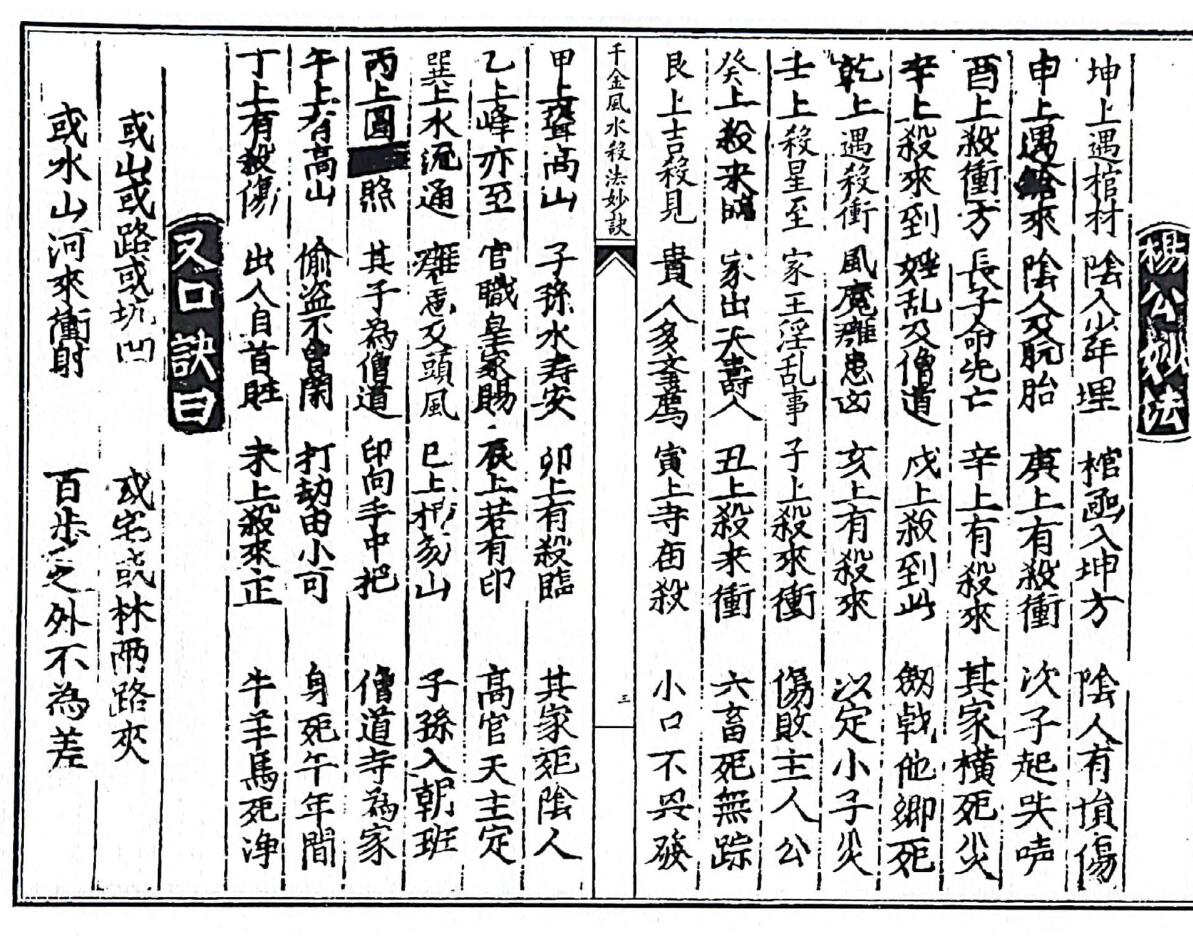 楊公妙法
坤上遇棺材 陰人少年埋 棺函入坤方 陰人有損傷
申上遇 來 陰人及脫胎 庚上有殺衝 次子起失声
酉上殺衝方 長子命先亡 辛上有殺來 其家橫死災
辛上殺來到 婬乱及僧道 戌上殺到此 劔戟他鄉死
乾上遇殺衝 風魔難患凶 亥上有殺來 以定小子災
壬上殺星至 家王淫乱事 子上殺來衝 傷敗主人公
癸上殺來臨 家出夭壽人 丑上殺来衝 六畜死無踪
艮上吉殺見 貴人多 寅上寺 殺 小口不 發
千金風水殺法妙訣
三
甲上聳高山 子孫水寿安 卯上有殺臨 其家死陰人
乙上峰亦至 官職皇家賜 辰上若有印 高官天主定
巽上水流通 患及頭風 巳上 山 子孫入朝班
丙上圓 照 其子為僧道 印向手中把 僧道寺為家
午上有高山 偷盜不曾閑 打劫由小可 身死午年間
丁上有殺傷 出人自首 未上殺來正 牛羊馬死淨
又口訣曰
或山或路或坑凹 或宅或林兩路夾
或水山河來衝射 百步之外不為差